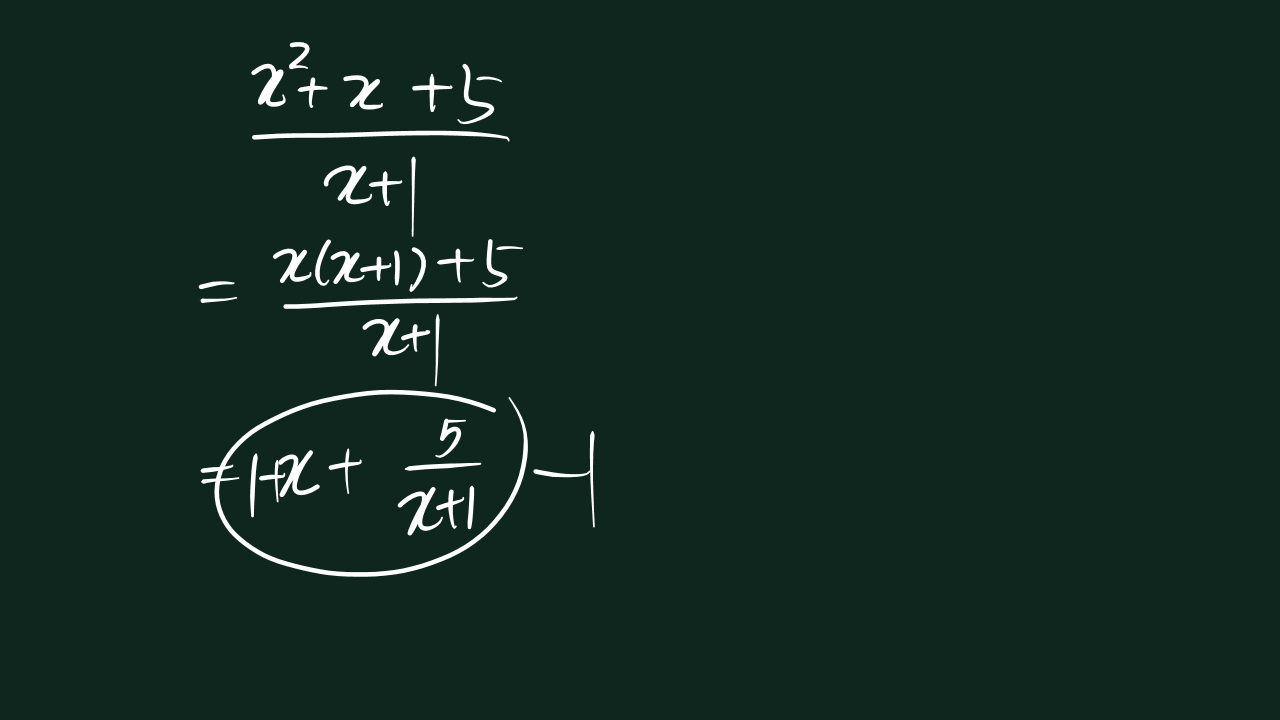 x²+x+5
x+1
= x(x+1)+5
x+1
= 1+x+ 5/(x+1) -1